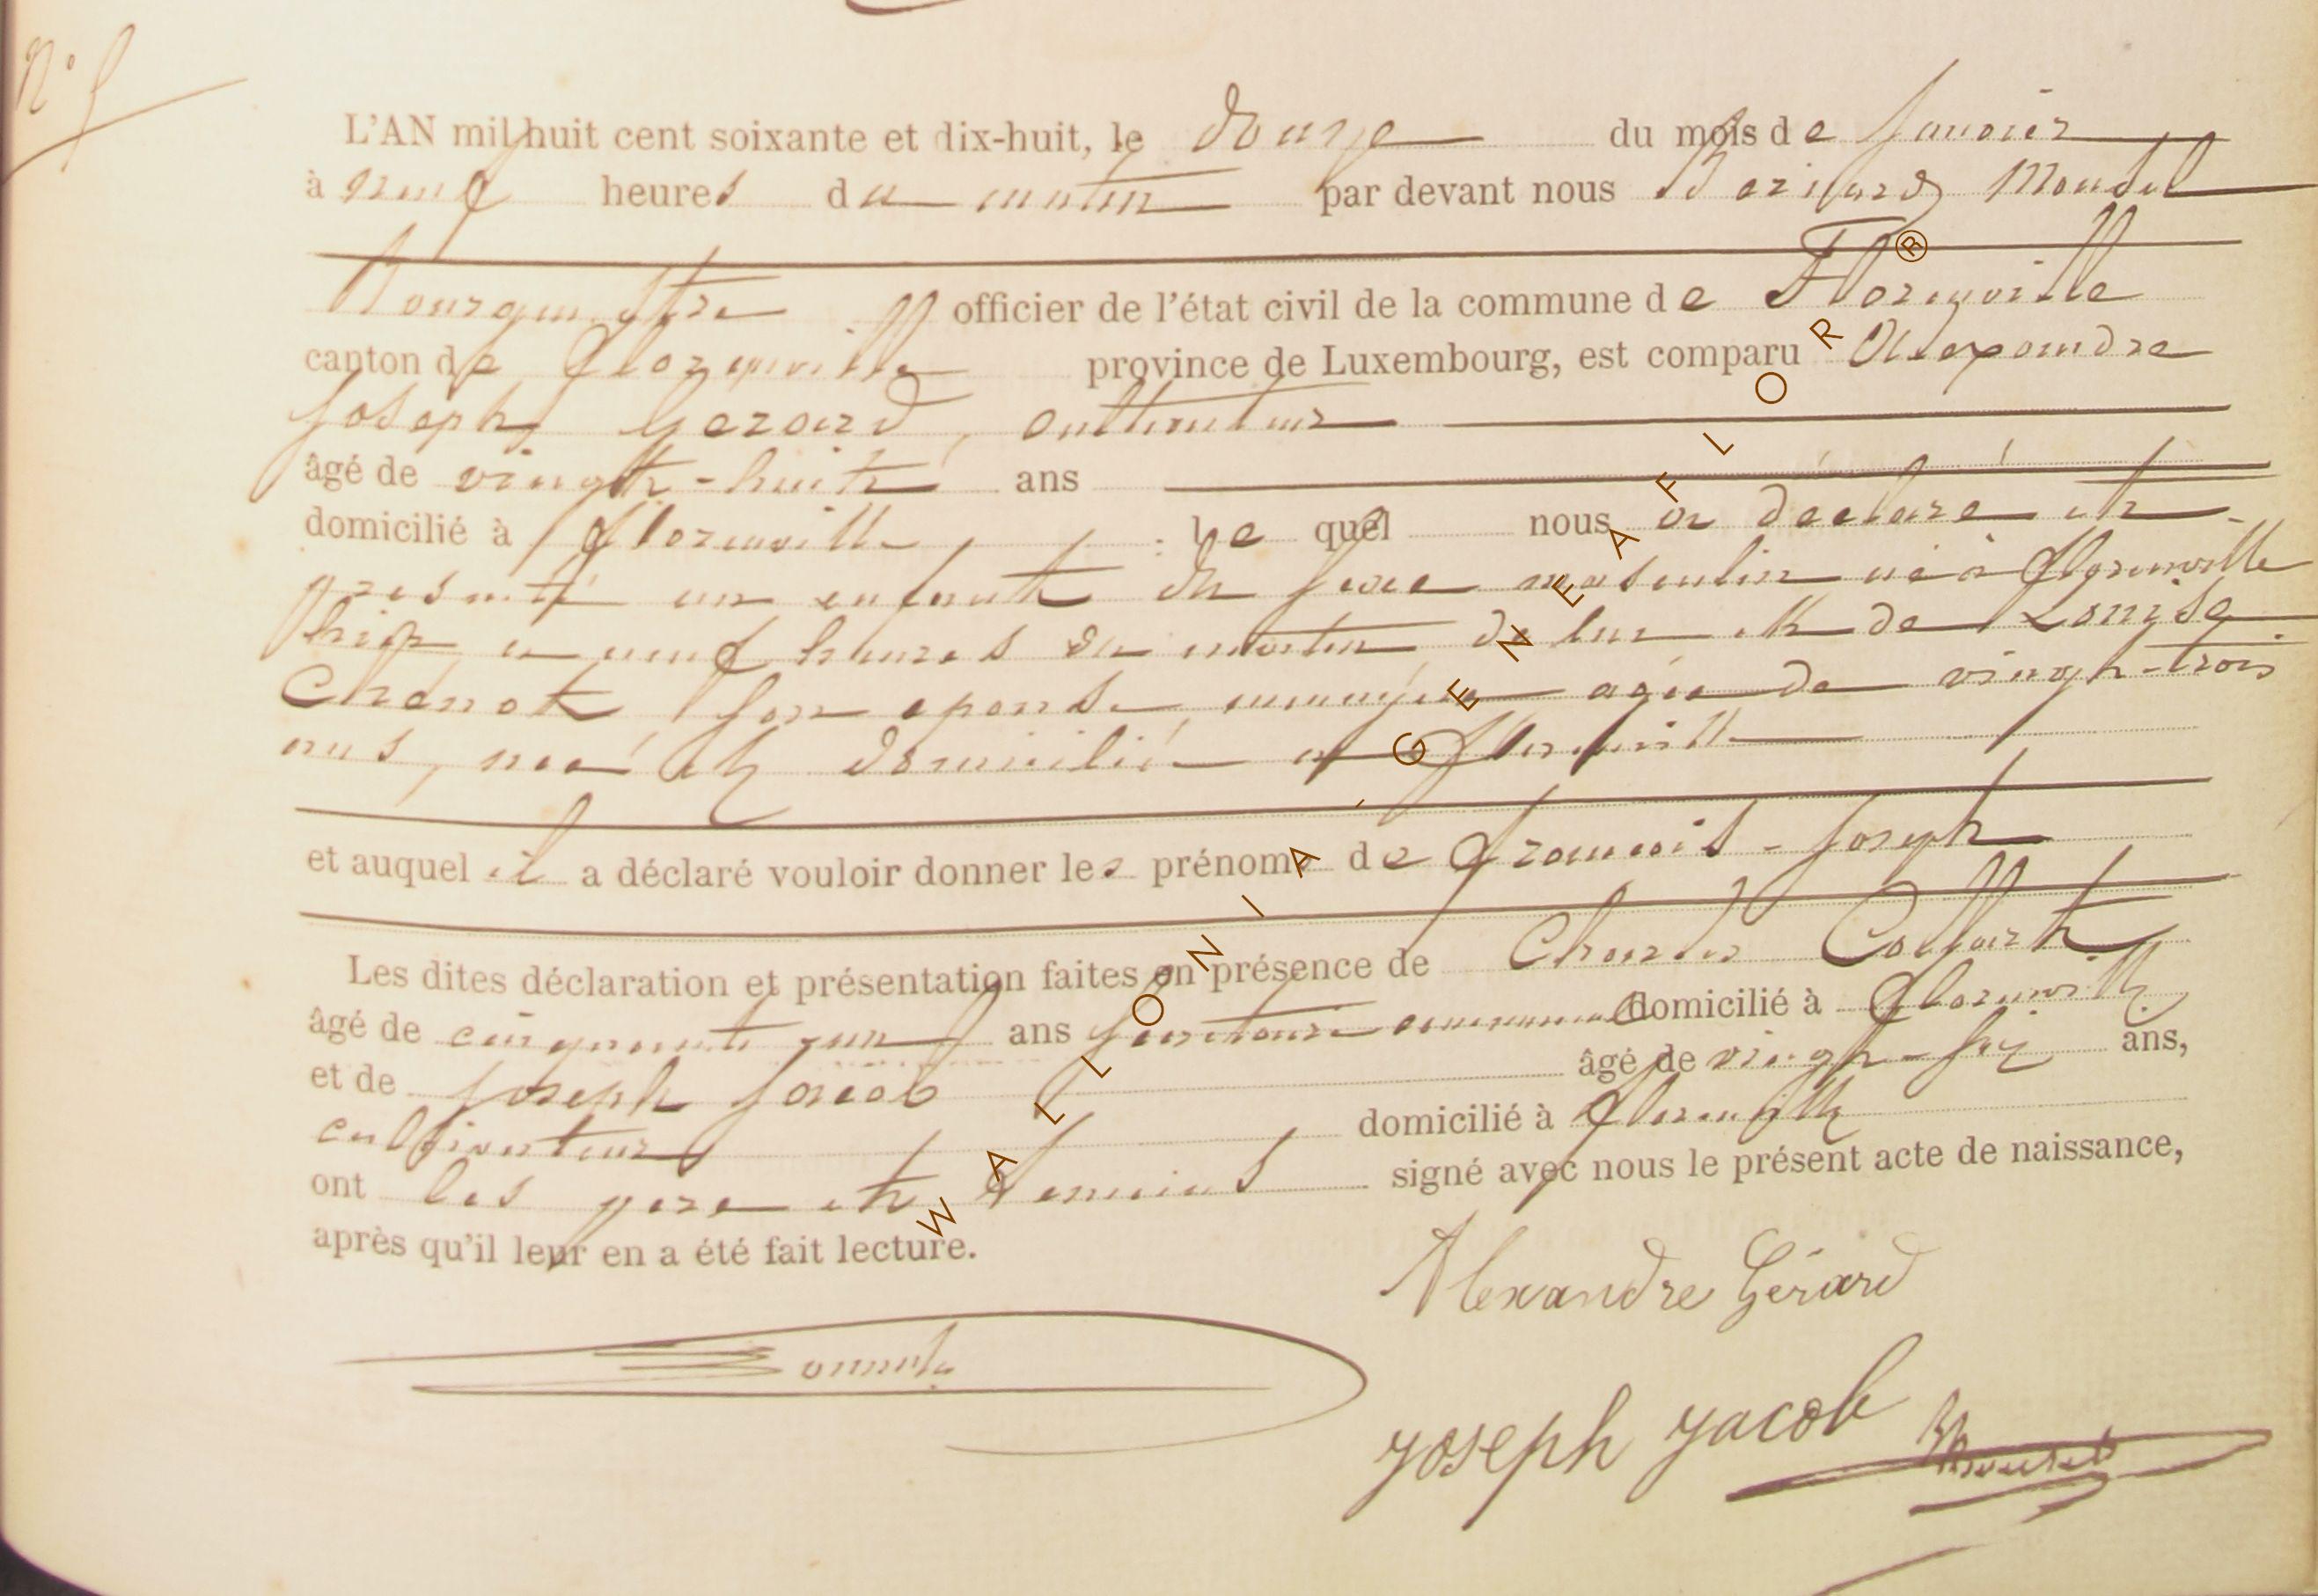 N° 5
L'AN mil huit cent soixante et dix-huit, le douze du mois de Janvier
à neuf heures du matin par devant nous Bernard Mousel
Bourgmestre officier de l'état civil de la commune de Florenville
canton de Florenville province de Luxembourg, est comparu Alexandre
Joseph Gerard, cultivateur
âgé de vingt-huit ans
domicilié à Florenville, le quel nous a déclaré et
presenté un enfant du sexe masculin né à Florenville
hier a neuf heures du matin de lui et de Louise
Chenot son epouse, menagère agée de vingt-trois
ans, née et domiciliée a Florenville
et auquel il a déclaré vouloir donner les prénoms de François-Joseph
Les dites déclaration et présentation faites en présence de Charles Collart
âgé de cinquante-un ans secretaire communal domicilié à Florenville
et de Joseph Jacob âgé de vingt-six ans,
cultivateur domicilié à Florenville
ont les pere et temoins signé avec nous le présent acte de naissance,
après qu'il leur en a été fait lecture.
Alexandre Gérard
Joseph Jacob
WALLONIA-GENEAFLOR®